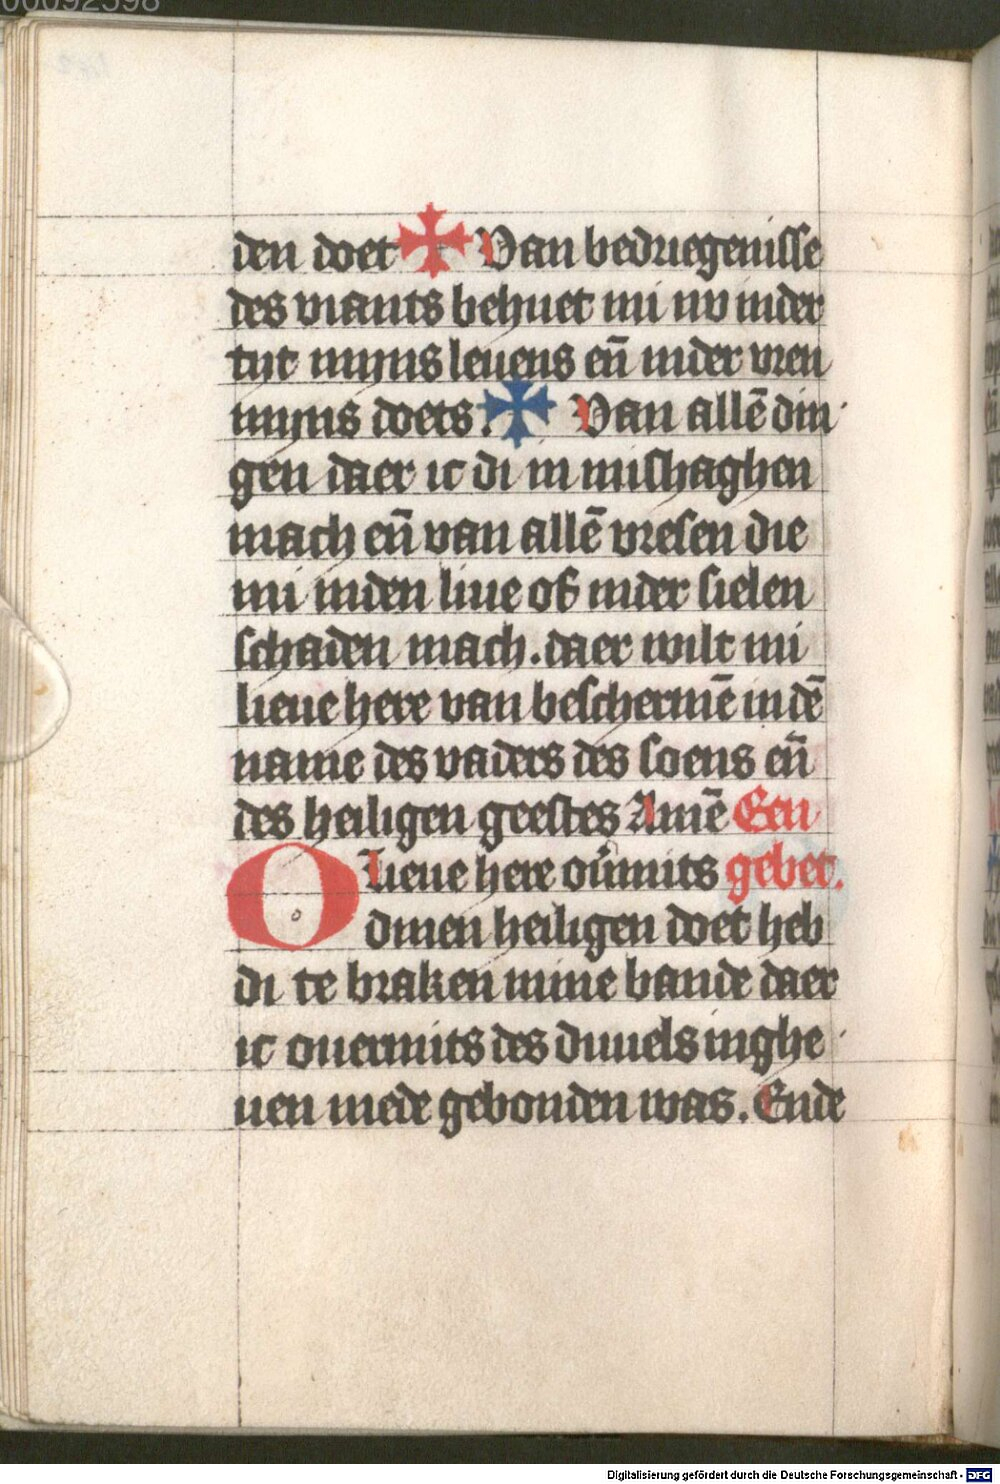 00092598
den doet ✠ Van bedriegenisse
des viants behuet mi nv inder
tijt mijns leuens eñ inder vren
mijns doets. ✠ Van allē din
gen daer ic di in mishaghen
mach eñ van allē vresen die
mi inden liue of inder sielen
schaden mach. daer wilt mi
lieue here van beschermē in dē
name des vaders des soens eñ
des heiligen geestes Amē Een
O Lieue here ou̓mits gebet.
dinen heiligen doet heb
di te braken mine bande daer
ic ouermits des duuels inghe
uen mede gebonden was. Ende
Digitalisierung gefördert durch die Deutsche Forschungsgemeinschaft - DFG